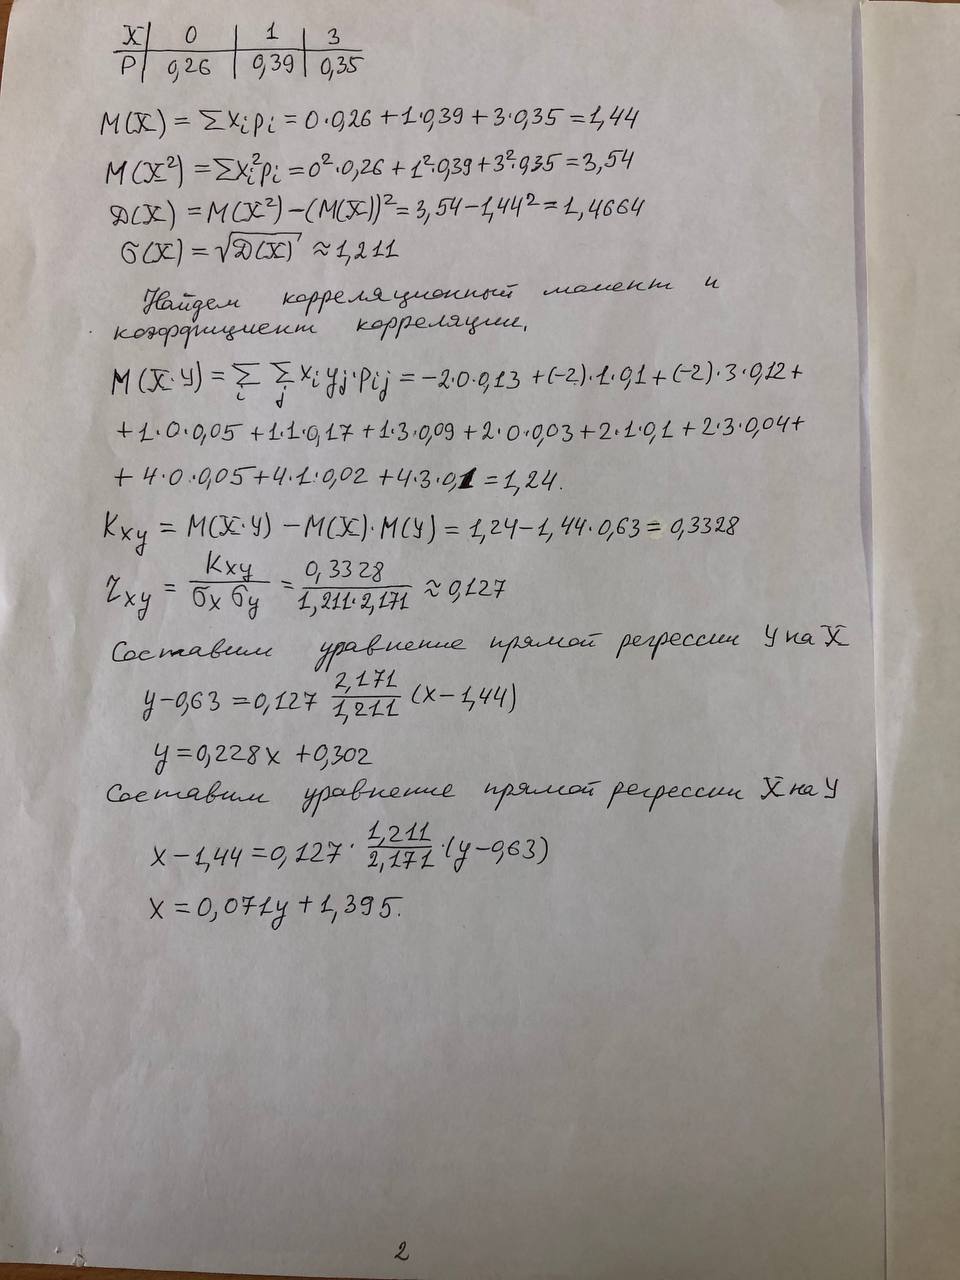 X | 0 | 1 | 3
P | 0,26 | 0,39 | 0,35
M(X) = Σxᵢpᵢ = 0·0,26 + 1·0,39 + 3·0,35 = 1,44
M(X²) = Σxᵢ²pᵢ = 0²·0,26 + 1²·0,39 + 3²·0,35 = 3,54
D(X) = M(X²) – (M(X))² = 3,54 – 1,44² = 1,4664
σ(X) = √D(X) ≈ 1,211
Найдем корреляционный момент и
коэффициент корреляции.
M(X·Y) = Σᵢ Σⱼ xᵢ yⱼ·pᵢⱼ = –2·0·0,13 + (–2)·1·0,1 + (–2)·3·0,12 +
+ 1·0·0,05 + 1·1·0,17 + 1·3·0,09 + 2·0·0,03 + 2·1·0,1 + 2·3·0,04 +
+ 4·0·0,05 + 4·1·0,02 + 4·3·0,1 = 1,24.
Kxy = M(X·Y) – M(X)·M(Y) = 1,24 – 1,44·0,63 = 0,3328
rxy = Kxy / σx σy = 0,3328 / 1,211·2,171 ≈ 0,127
Составим уравнение прямой регрессии Y на X
y – 0,63 = 0,127 2,171 / 1,211 (x – 1,44)
y = 0,228x + 0,302
Составим уравнение прямой регрессии X на Y
x – 1,44 = 0,127 · 1,211 / 2,171 · (y – 0,63)
x = 0,071y + 1,395.
2